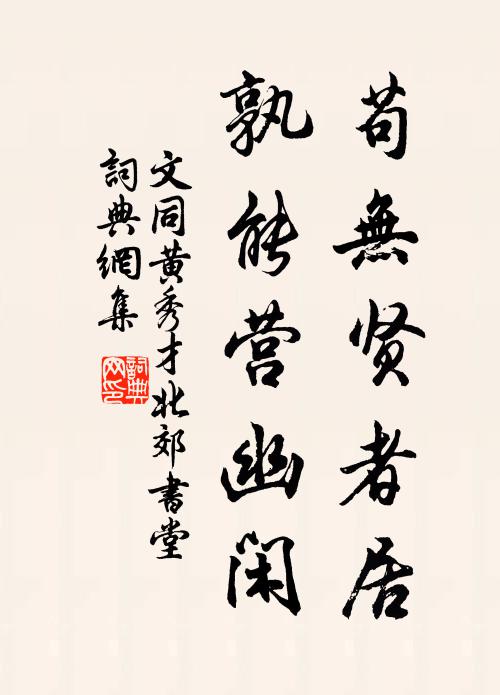 苟無贤者居
孰能营幽闲
文同黄秀才北郊書堂
詞典網集
詞典网印